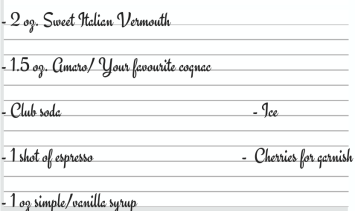 - 2 oz. Sweet Italian Vermouth
- 1.5 oz. Amaro/ Your favourite cognac
- Club soda - Ice
- 1 shot of espresso - Cherries for garnish
- 1 oz simple/vanilla syrup